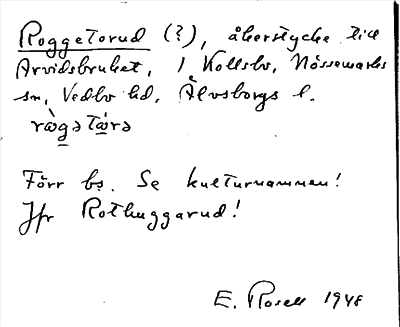 Roggetorud (?), åkerstycke till
Arvidsbruket, i Kollsbo, Nössemarks
sn, Vedbo hd, Älvsborgs l.
rὼgətάrə
Förr bs. Se kulturnamnen!
Jfr Rothuggarud!
E. Rosell 1948